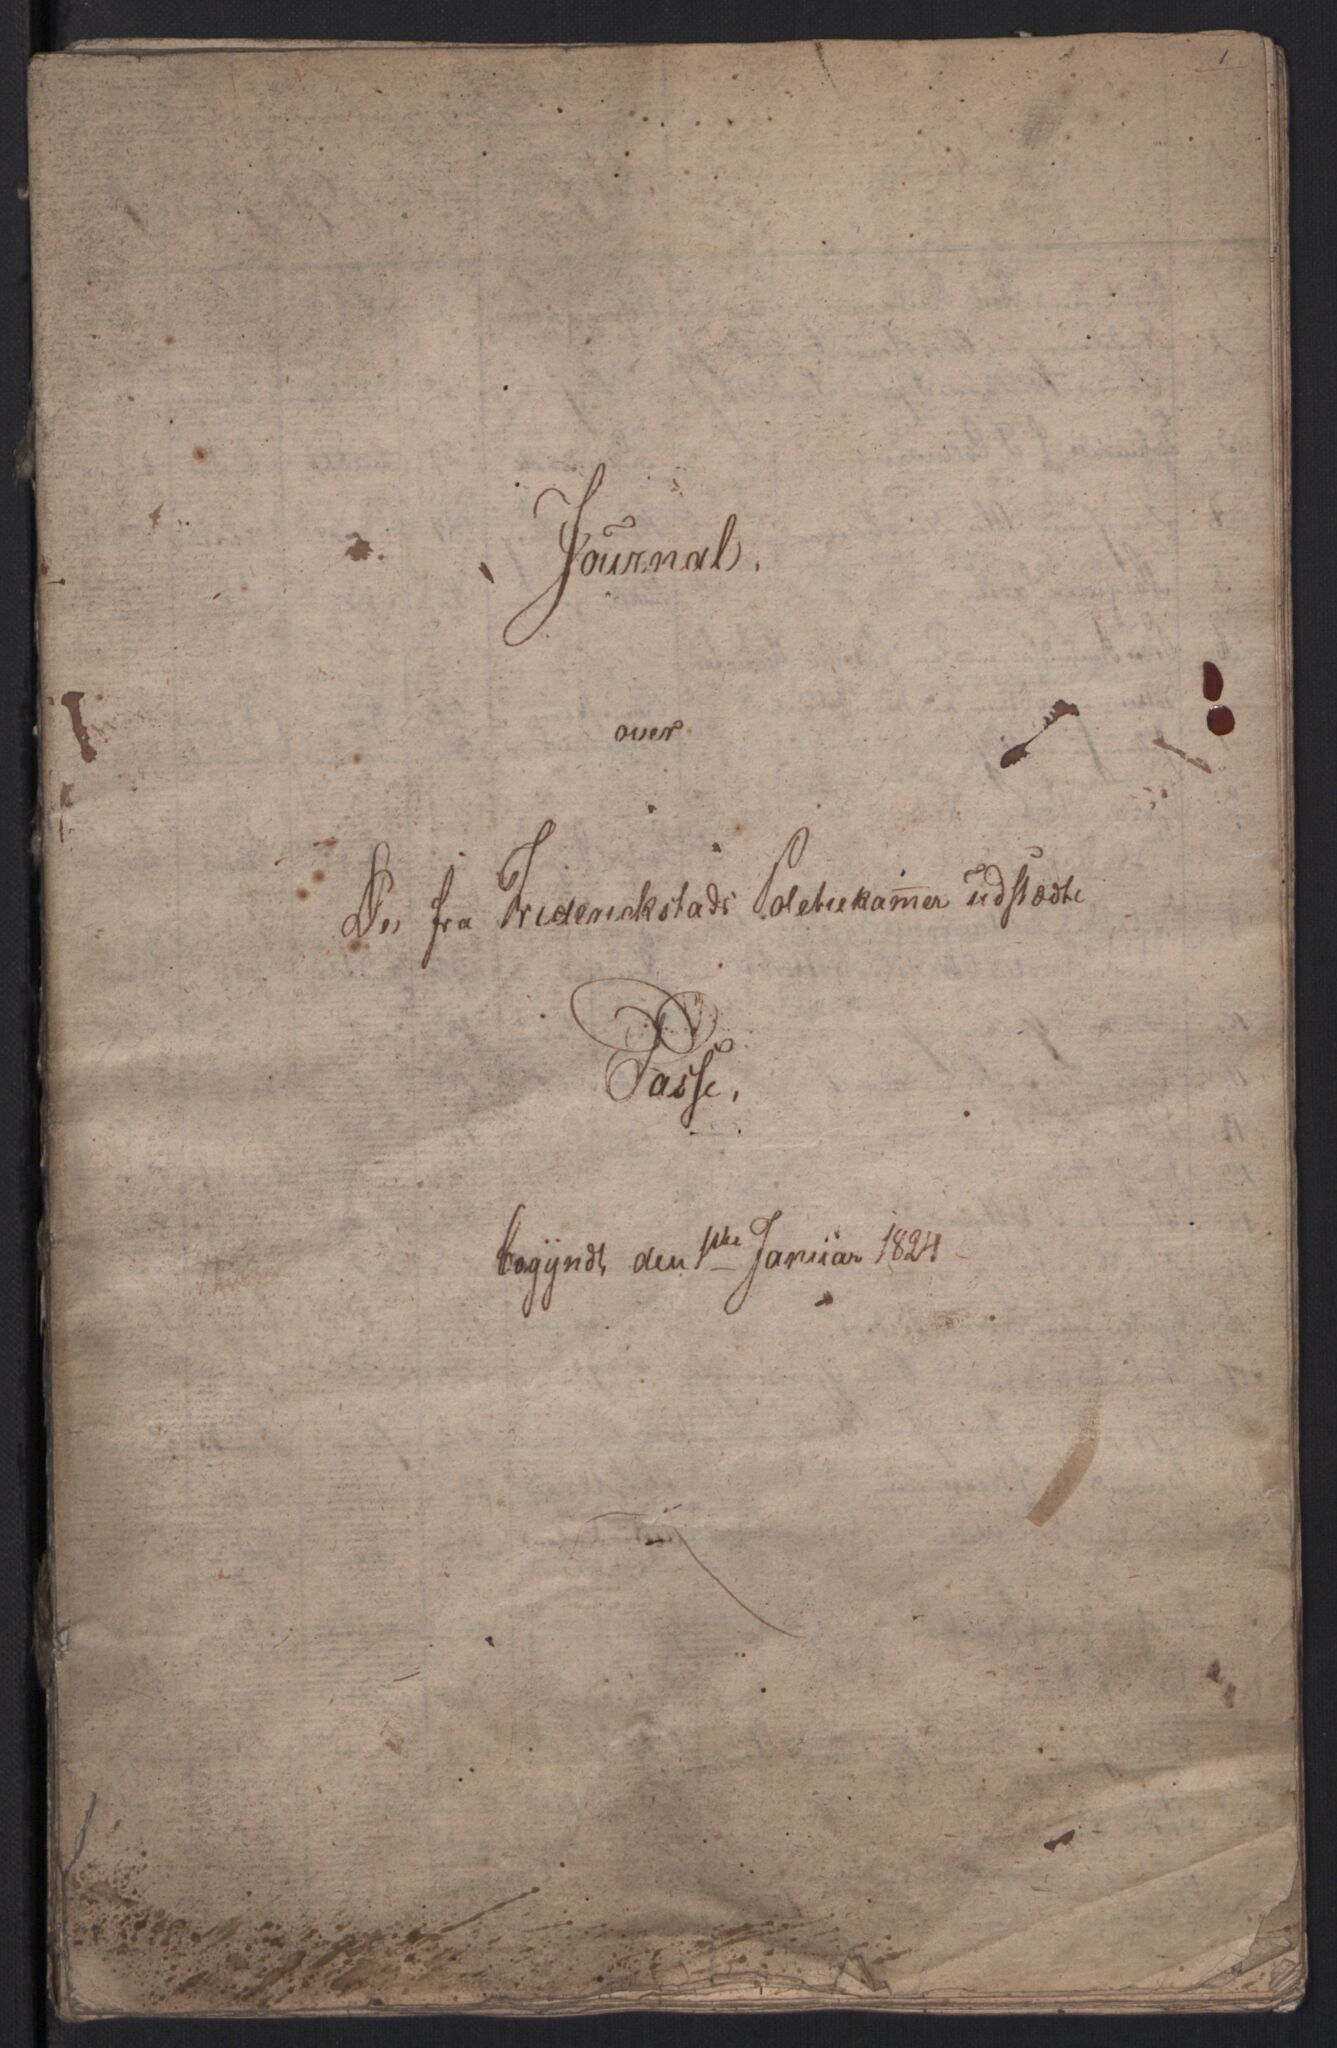 1
Journal.
over
De fra Friderickstads Politiekam̅er udstædte
Passe.
begyndt den 1ste Januar 1824